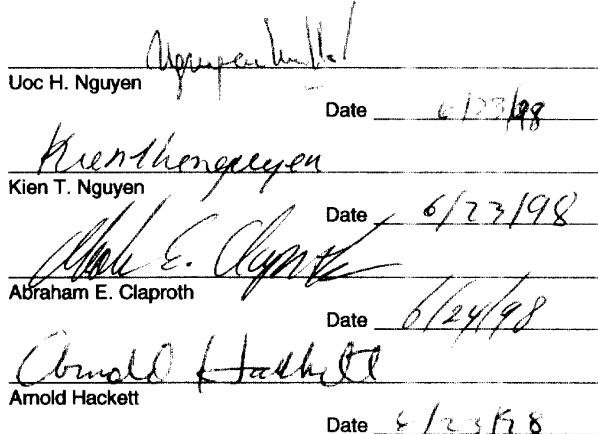 Uoc H. Nguyen
Date 6/23/98
Kien T. Nguyen
Kien T. Nguyen
Date 6/23/98
E. Claproth
Abraham E. Claproth
Date 6/24/98
Arnold Hackett
Arnold Hackett
Date 6/23/98